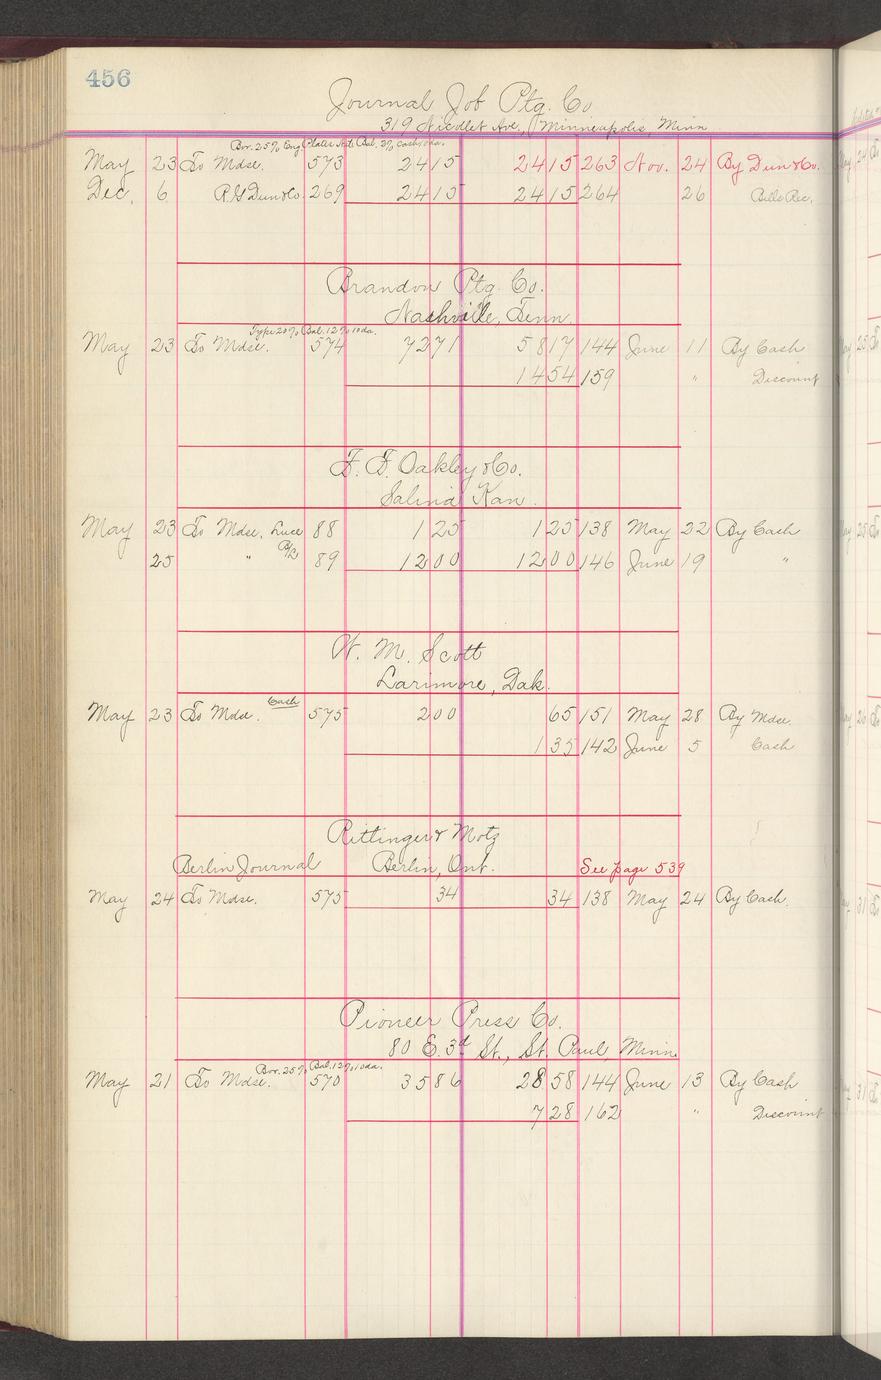 456
Journal Job Ptg. Co
319 Nicollet Ave, Minneapolis, Minn
Bor. 25% Eng Plates Net Bal. 2% cash
May 23 To Mdse. 573 2415 2415 263 Nov. 24 By Dun & Co.
Dec. 6 R. G Dun & Co. 269 2415 2415 264 26 Bills Rec.
Brandon Ptg. Co.
Nashville, Tenn.
Type 20% Bal. 12% 10 da.
May 23 To Mdse. 574 7271 5817 144 June 11 By Cash
1454 159 " Discount
F. F. Oakley & Co.
Salina Kan.
May 23 To Mdse. Luce 88 125 125 138 May 22 By Cash
25 " B/L 89 1200 1200 146 June 19 "
W. M. Scott
Larimore, Dak.
May 23 To Mdse. Cash 575 200 65 151 May 28 By Mdse.
135 142 June 5 Cash
Rittinger & Motz
Berlin Journal Berlin, Ont. See page 539
May 24 To Mdse. 575 34 34 138 May 24 By Cash.
Pioneer Press Co.
80 E. 3d St., St. Paul, Minn
Bor. 25% Bal. 12% 10 da.
May 21 To Mdse. 570 3586 2858 144 June 13 By Cash
728 162 " Discount